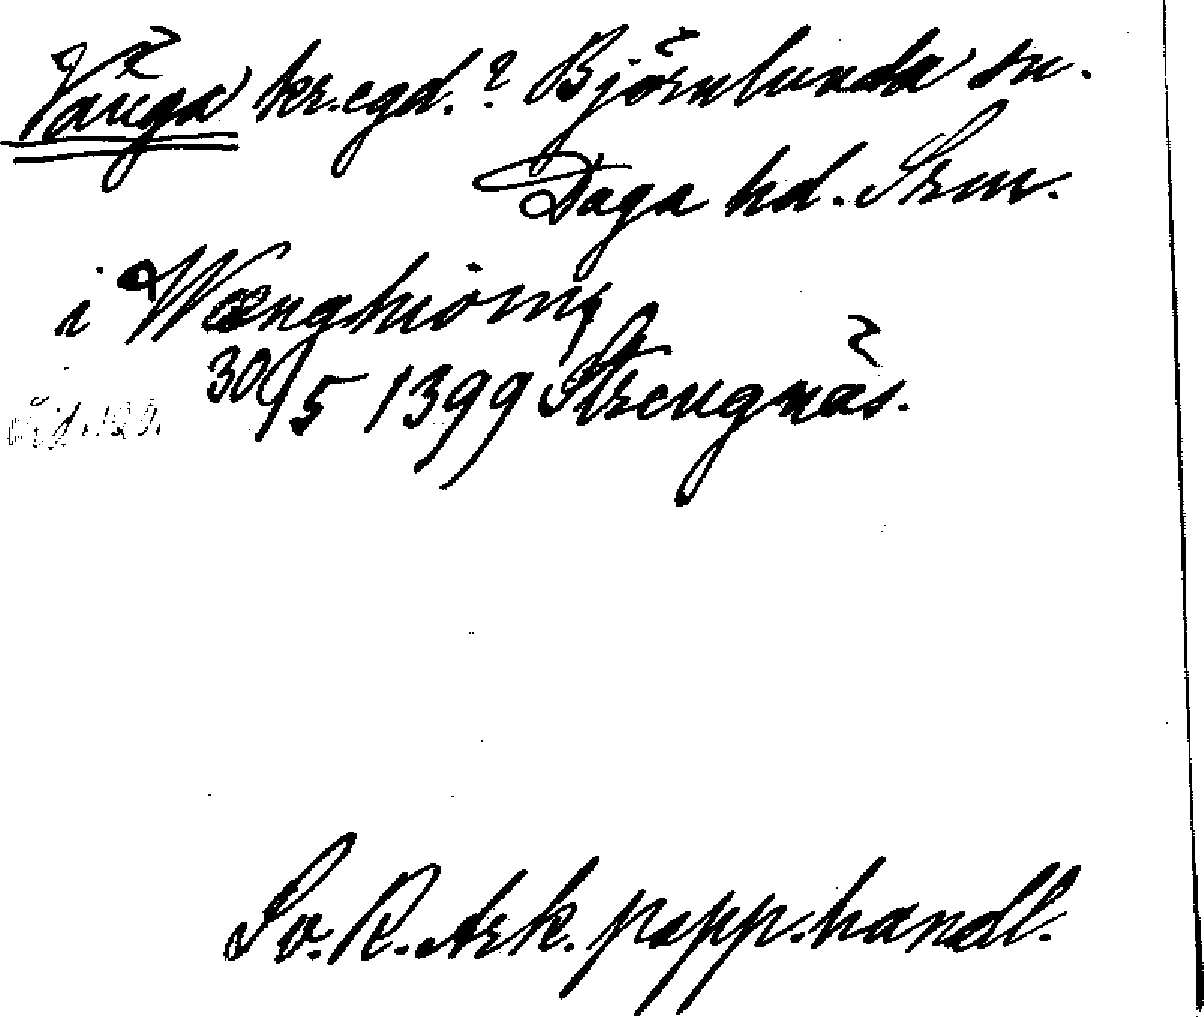 Vänga kr.egd.? Björnlunda sn.
Daga hd. Srm.
i Wænghiom
30/5 1399 Strengnäs.
Sv. R. Ark. papp.handl.